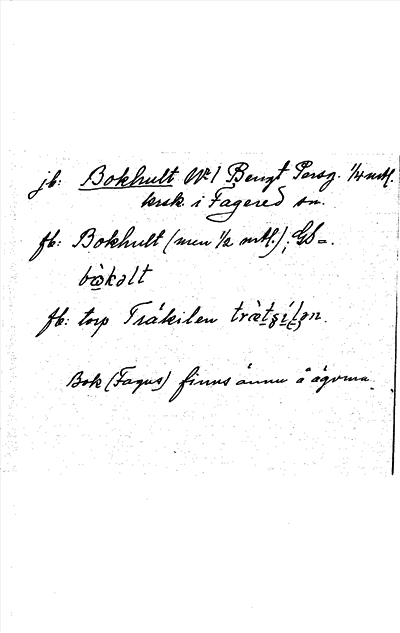 jb: Bokhult No 1 Bengt Persg. 1/4 mtl.
krsk i Fagered sn.
fb: Bokhult (men 1/2 mtl.); GS=.
bὼkəlt
fb: torp Tråkilen
Bok (Fagus) finns ännu å ägorna.